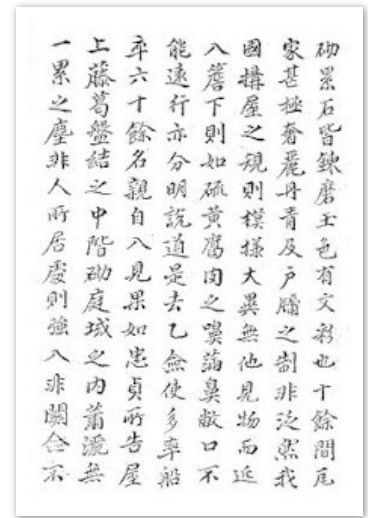 砌累石皆鍊磨玉色有文彩也十餘間瓦
家甚極奢麗丹青及戶牖之制非泛然我
國搆屋之規則模樣大異無他見物而近
入簷下則如硫黃腐肉之嗅滿鼻敝口不
能遠行亦分明說道是去乙僉使多率船
卒六十餘名親自入見果如忠貞所告屋
上藤葛盤結之中階砌庭域之內蕭灑無
一累之塵非人所居處則強入非關念不